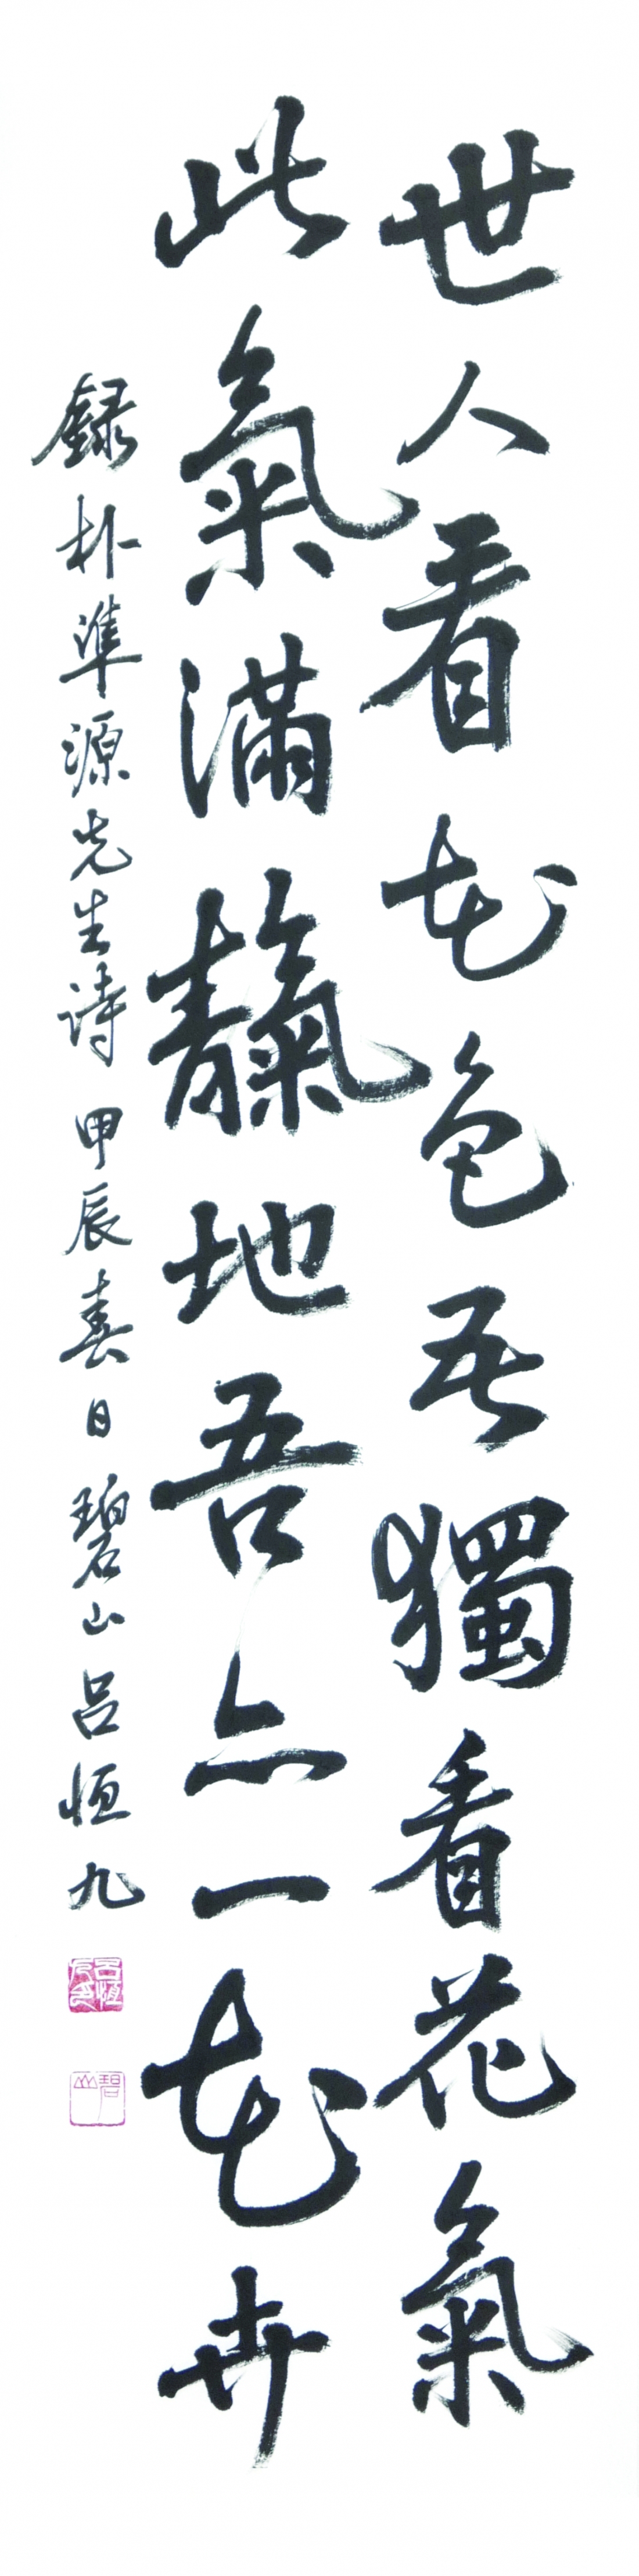 世人看花色吾獨看花氣
此氣滿靝地吾亦一花卉
録朴準源先生詩 甲辰春日 碧山呂恒九
呂恒九印
碧山